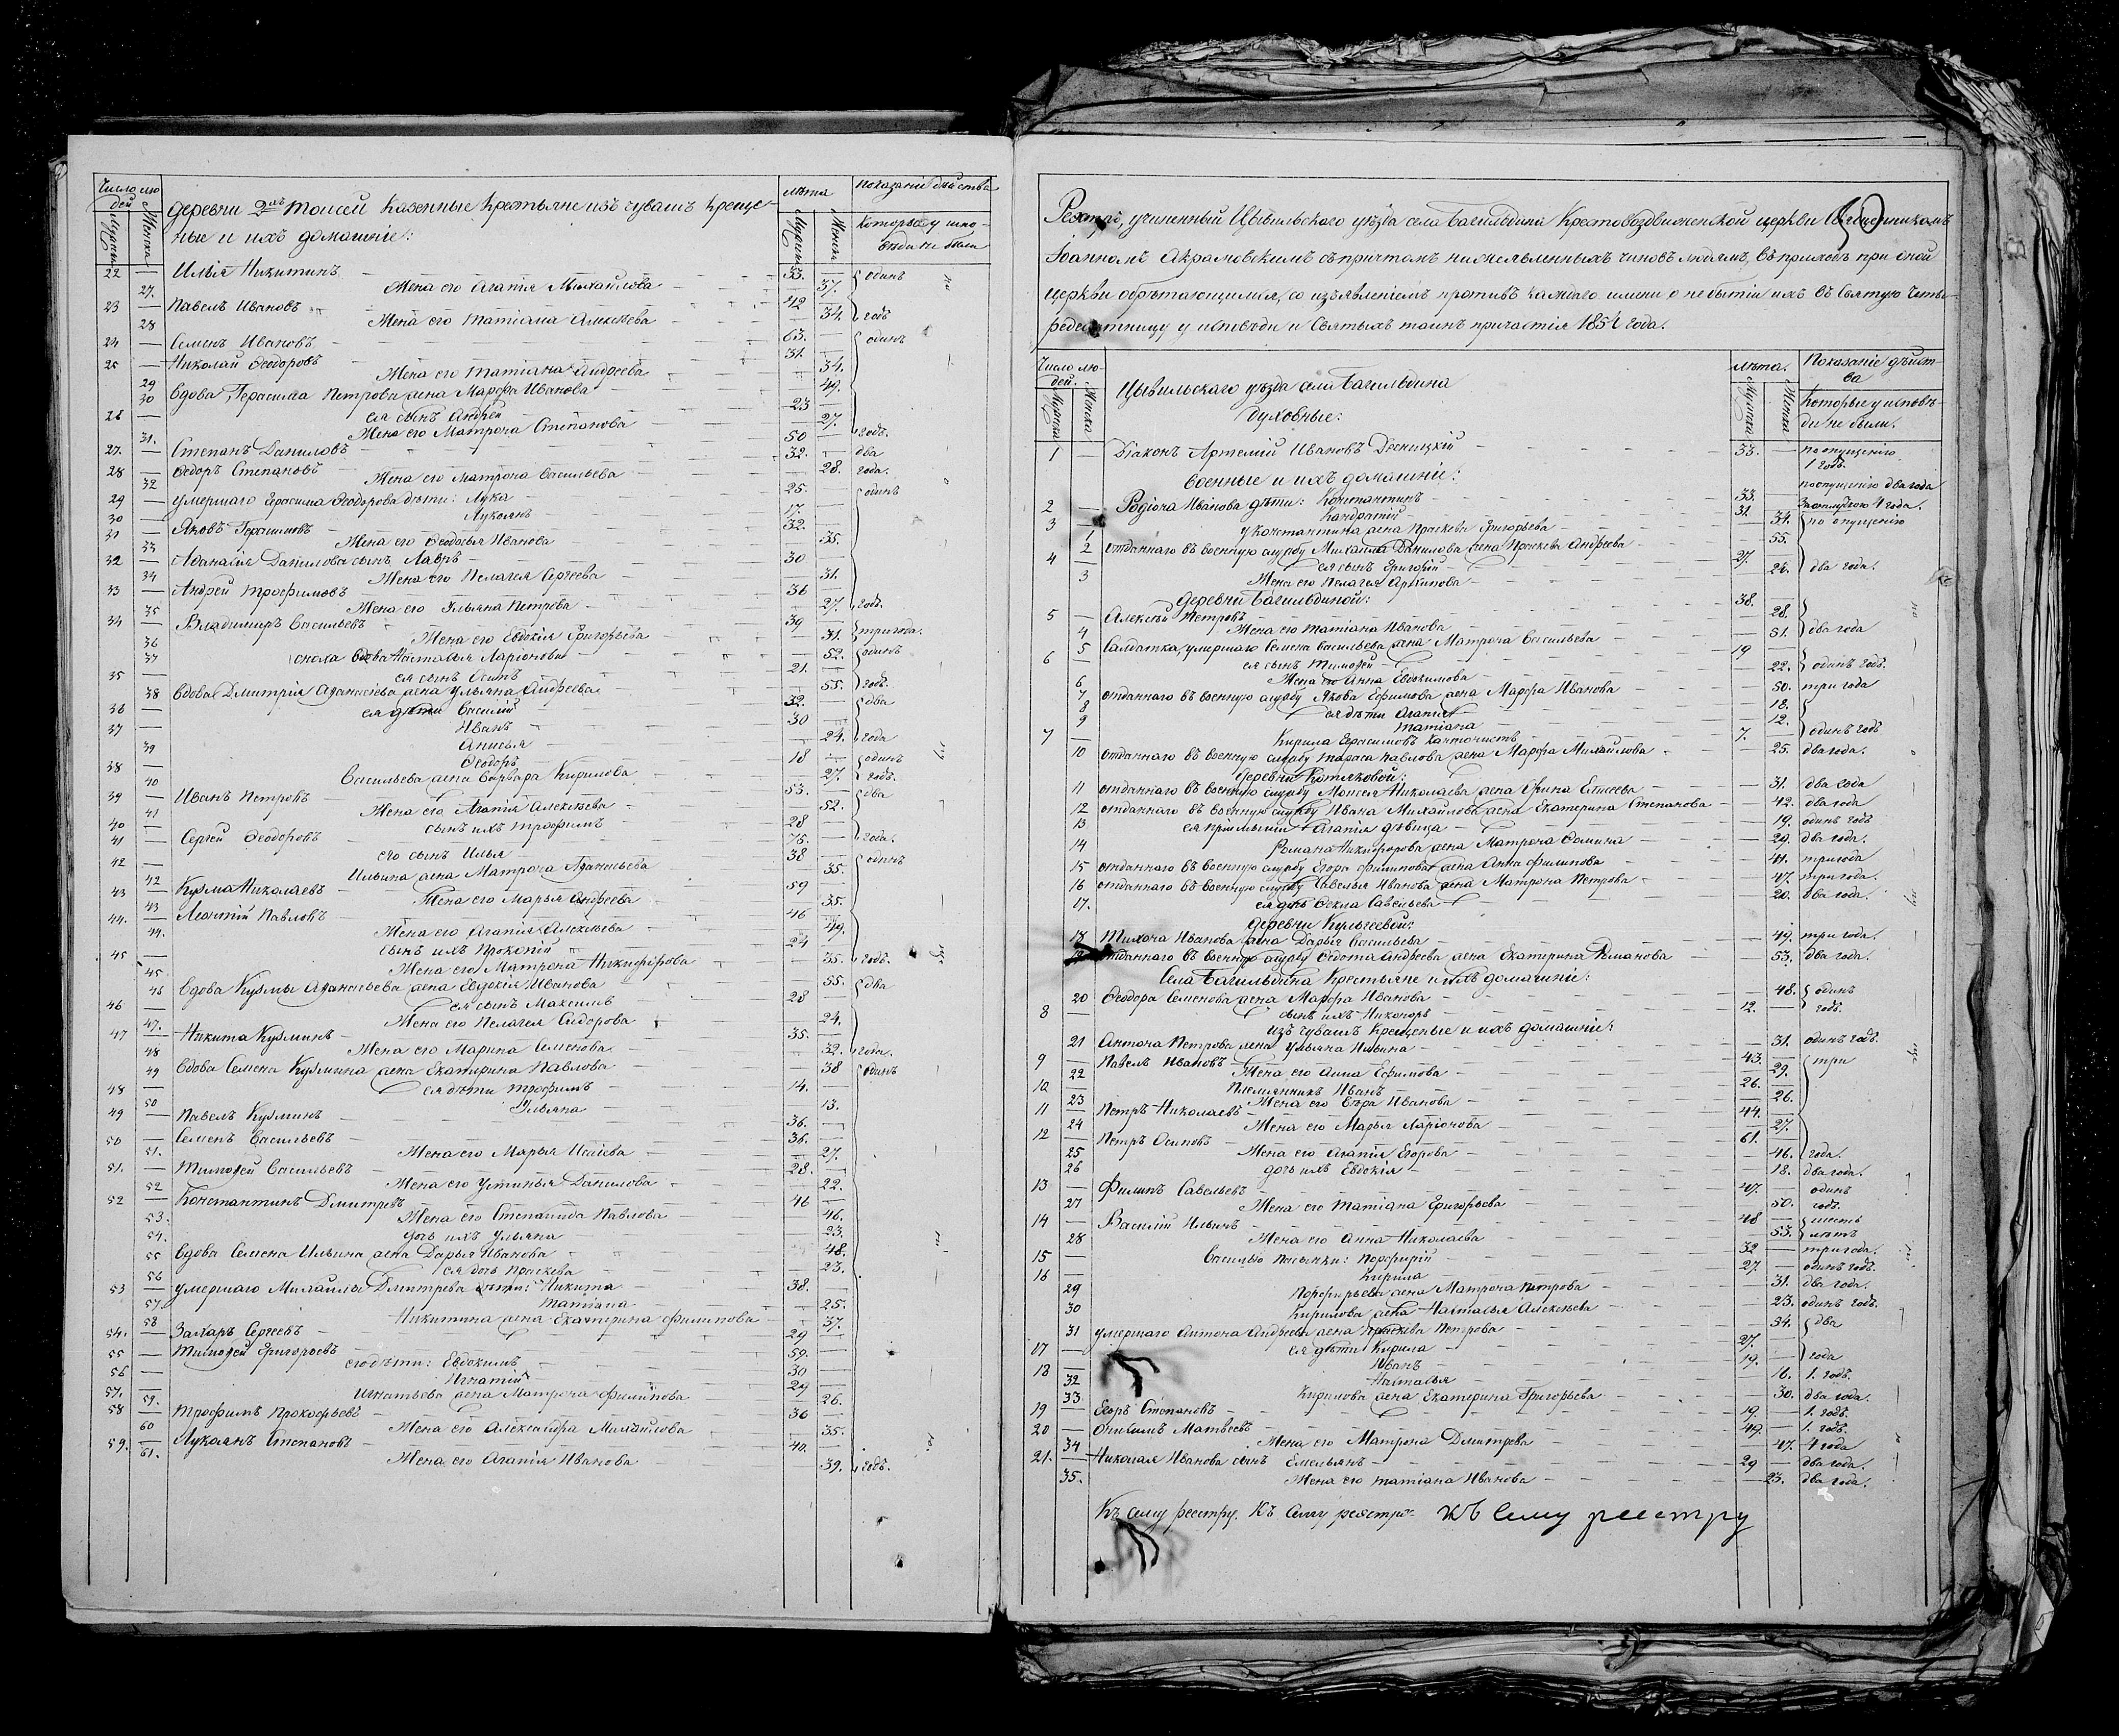 Число лю
дей
Мужска
Женска
деревни 2хъ Томсей казенные крестьяне изъ чувашъ креще-
ные и ихъ домашніе:
лѣта
Мужска
Женска
показаніе дѣйства
которые у испо-
вѣди не были
22 — Илья Никитинъ — 33. — одинъ
27. Жена его Агапія Михайлова — 37.
23 — Павелъ Ивановъ — 42 —
28 Жена его Татіана Алексѣева — 34. годъ
24 — Семенъ Ивановъ — 63. — одинъ
25 — Николай Ѳеодоровъ — 31. —
29 Жена его Татіана Андреева — 34.
30 Вдова Герасима Петрова жена Марѳа Иванова — 49.
26 — ея сынъ Андрей — 23 —
31. Жена его Матрона Степанова — 27. годъ.
27. — Степанъ Даниловъ — 50 — два
28 — Ѳедоръ Степановъ — 32. —
32 Жена его Матрона Васильева — 28. года.
29 — умершаго Герасима Ѳеодорова дѣти: Лука — 25. одинъ
30 — Лукоянъ — 17. —
31 — Яковъ Герасимовъ — 32. —
33 Жена его Ѳеодосья Иванова — 35.
32 — Аѳанасія Данилова сынъ Лавръ — 30
34 Жена его Пелагея Сергеева — 31.
33 — Андрей Трофимовъ — 36
35 Жена его Ульяна Петрова — 27. годъ.
34 — Владимиръ Васильевъ — 39 —
36 Жена его Евдокія Григорьева — 31. три года.
37 сноха вдова Наталья Ларіонова — 52. одинъ
35 — ея сынъ Осипъ — 21. —
38 Вдова Дмитрія Аѳанасьева жена Ульяна Андреева — 55. годъ.
36 — ея дѣти Василій — 32. — два
37 — Иванъ — 30 —
39 Анисья — 24. года
38 — Ѳеодоръ — 18 — одинъ
40 Васильева жена Варвара Кирилова — 27 годъ.
39 — Иванъ Петровъ — 53. — два
41 Жена его Агапія Алексѣева — 52.
40 — сынъ ихъ Трофимъ — 28
41 — Сергей Ѳеодоровъ — 75. — года.
42 — его сынъ Илья — 38 — одинъ
42 Ильина жена Матрона Аѳанасьева — 35.
43 — Кузма Николаевъ — 59
43 Жена его Марья Андреева — 35.
44. — Леонтій Павловъ — 46
44. Жена его Агапія Алексѣева — 49.
45 — сынъ ихъ Прокопій — 24
45 Жена его Матрона Никифорова — 35. годъ.
46 Вдова Кузмы Аѳанасьева жена Евдокія Иванова — 55. два
46 — ея сынъ Максимъ — 28
47. Жена его Пелагея Сидорова — 24.
47 — Никита Кузминъ — 35. —
48 Жена его Марина Семенова — 32. года.
49 Вдова Семена Кузмина жена Екатерина Павлова — 38 одинъ
48 — ея дѣти Трофимъ — 14. —
50 Ульяна — 13.
49 — Павелъ Кузминъ — 36. —
50 — Семенъ Васильевъ — 36. —
51. Жена его Марья Исаева — 27.
51. — Тимоѳей Васильевъ — 28. —
52 Жена его Устинья Данилова — 22.
52 — Константинъ Дмитревъ — 46 —
53. Жена его Степанида Павлова — 46.
54. дочь ихъ Ульяна — 23.
55 Вдова Семена Ильина жена Дарья Иванова — 48.
56 ея дочь Праскева — 23.
53 — умершаго Михайлы Дмитрева дѣти: Никита — 38. —
57. Татіана — 25.
58 Никитина жена Екатерина Филипова — 37.
54. — Захаръ Сергеевъ — 29 —
55 — Тимоѳей Григорьевъ — 59. —
56 — его дѣти: Евдокимъ — 30
57. — Игнатій — 29
59. Игнатьева жена Матрона Филипова — 26.
58 — Трофимъ Прокофьевъ — 36 —
60 Жена его Александра Михайлова — 35.
59. — Лукоянъ Степановъ — 40. —
61. Жена его Агапія Иванова — 39. годъ.
Реэстръ, учиненный Цывильскаго уѣзда села Багильдина Крестовоздвиженской церкви Священникомъ
Іоанномъ Акрамовскимъ съ причтомъ нижеявленныхъ чиновъ людямъ, въ приходѣ при оной
церкви обрѣтающимся, со изъявленіемъ противъ каждаго имени о небытіи ихъ въ Святую Четы-
редесятницу у исповѣди и Святыхъ таинъ причастія 1851 года.
Число лю-
дей.
Мужска
Женска
Цывильскаго уѣзда села Багильдина
духовные:
лѣта.
Мужска
Женска
Показаніе дѣйст-
ва
Которые у исповѣ-
ди не были.
1 — Діаконъ Артемій Ивановъ Десницкій — 33. — по опущенію
1 годъ.
военные и ихъ домашніе:
2 — Родіона Иванова дѣти: Константинъ — 33. — по опущенію два года
3 — Кандратій — 31. — за отлучкою 4 года.
1 у Константина жена Праскева Григорьева — 34. по опущенію
2 отданнаго въ военную службу Михайла Данилова жена Праскева Андреева — 55.
4 — ея сынъ Григорій — 27.
3 Жена его Пелагея Архипова — 26. два года.
деревни Багильдиной:
5 — Алексѣй Петровъ — 38.
4 Жена его Татіана Иванова — 28.
5 Салдатка, умершаго Семена Васильева жена Матрона Васильева — 51. два года
6 — ея сынъ Тимоѳей — 19
6 Жена его Анна Евдокимова — 22. одинъ годъ.
7 отданнаго въ военную службу Якова Ефимова жена Марѳа Иванова — 50. три года
8 ея дѣти Агапія — 18.
9 Татіана — 12.
7 — Кирила Герасимовъ кантонистъ — 7. одинъ годъ
10 отданнаго въ военную службу Тараса Павлова жена Марѳа Михайлова — 25. два года.
деревни Котяковой:
11 отданнаго въ военную службу Моисея Николаева жена Ирина Елисеева — 31. два года
12 отданнаго въ военную службу Ивана Михайлова жена Екатерина Степанова — 42. два года
13 ея примышій Агапія дѣвица — 19. одинъ годъ
14 Романа Никифорова жена Матрона Ѳомина — 29. два года.
15 отданнаго въ военную службу Егора Филипова жена Анна Филипова — 41. три года
16 отданнаго въ военную службу Савелья Иванова жена Матрона Петрова — 47. три года.
17. ея дочь Ѳекла Савельева — 20. два года.
деревни Кульгеевой:
18 Тихона Иванова жена Дарья Васильева — 49. три года.
отданнаго въ военную службу Ѳедота Андреева жена Екатерина Романова — 53. два года.
Села Багильдина Крестьяне и ихъ домашніе:
20 Ѳеодора Семенова жена Марѳа Иванова — 48. одинъ
8 — сынъ ихъ Никоноръ — 12. годъ.
изъ чувашъ крещеные и ихъ домашніе:
21 Антона Петрова жена Ульяна Ильина — 31. одинъ годъ.
9 — Павелъ Ивановъ — 43. — три
22 Жена его Анна Ефимова — 29.
10 — Племянникъ Иванъ — 26.
23 Жена его Вѣра Иванова — 26.
11 — Петръ Николаевъ — 44.
24 Жена его Марья Ларіонова — 27.
12 — Петръ Осиповъ — 61.
25 Жена его Агапія Егорова — 46. года.
26 дочь ихъ Евдокія — 18. два года.
13 — Филипъ Савельевъ — 47. — одинъ
27 Жена его Татіана Григорьева — 50. годъ.
14 — Василій Ильинъ — 48 — шесть
28 Жена его Анна Николаева — 53. лѣтъ
15 — Василью пасынки: Порфирій — 32 — три года.
16 — Кирила — 27. — одинъ годъ.
29 Порфирьева жена Матрона Петрова — 31. два года.
30 Кирилова жена Наталья Алексѣева — 23. одинъ годъ.
31 умершаго Антона Андреева жена Праскева Петрова — 54. два
17 — ея дѣти Кирила — 27.
18 — Иванъ — 19. — года
32 Наталья — 16. 1. годъ.
33 Кирилова жена Екатерина Григорьева — 30. два года.
19 — Егоръ Степановъ — 19. — 1. годъ.
20 — Онисимъ Матвеевъ — 49. — 1. годъ.
34 Жена его Матрона Дмитрева — 47. 4 года
21. — Николая Иванова сынъ Емельянъ — 29 — два года.
35. Жена его Татіана Иванова — 23. два года.
Къ сему реэстру. Къ Сему реэстру Къ Сему реестру